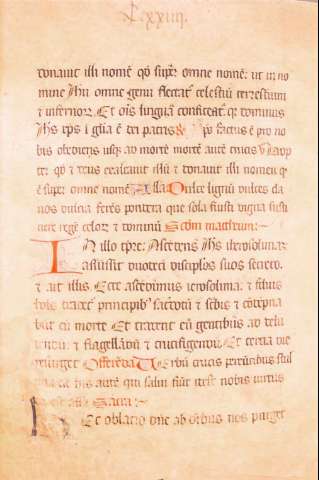 Lxxiiij.
donavit illi nomē qđ super omne nomē: ut in no
mine Jhū omne genu flectat̃ celestiū terrestrium
& infernorꝝ Et oīs lingua confiteat̃ qꝛ dominus
Jhs xp̄s ī gl̃ia ē dei patris xp̄s factus ē pro no
bis obediens usqꝫ ad mortē mortē autē crucis Prop
ter qđ & deus exaltavit illū & donavit illi nomen q̄
ē super omne nomē Alla Dulce lignū dulces cla
vos dulcia ferēs pondera que sola fuisti digna susti
nere regē celorꝝ & dominū Scđm matheum:~
IN illo tp̄re: Ascendens Jhs iherosolimaꝫ
assūsit duodeci discipłos suos secreto.
& ait illis. Ecce ascēdimus ierosolima: & filius
hoīs tradet̃ principibꝰ sac̃dotū & scribis & cōdēpna
būt eū morte Et tradent eū gentibus ad delu
dendū: & flagellādū & crucifigendū: Et tercia die
resurget Offerēda Verbū crucis pereūtibus stul
ticia his autē qui salvi fiūt idest nobis virtus
est Sacra:~
Et oblacio dñe ab oībus nos purget